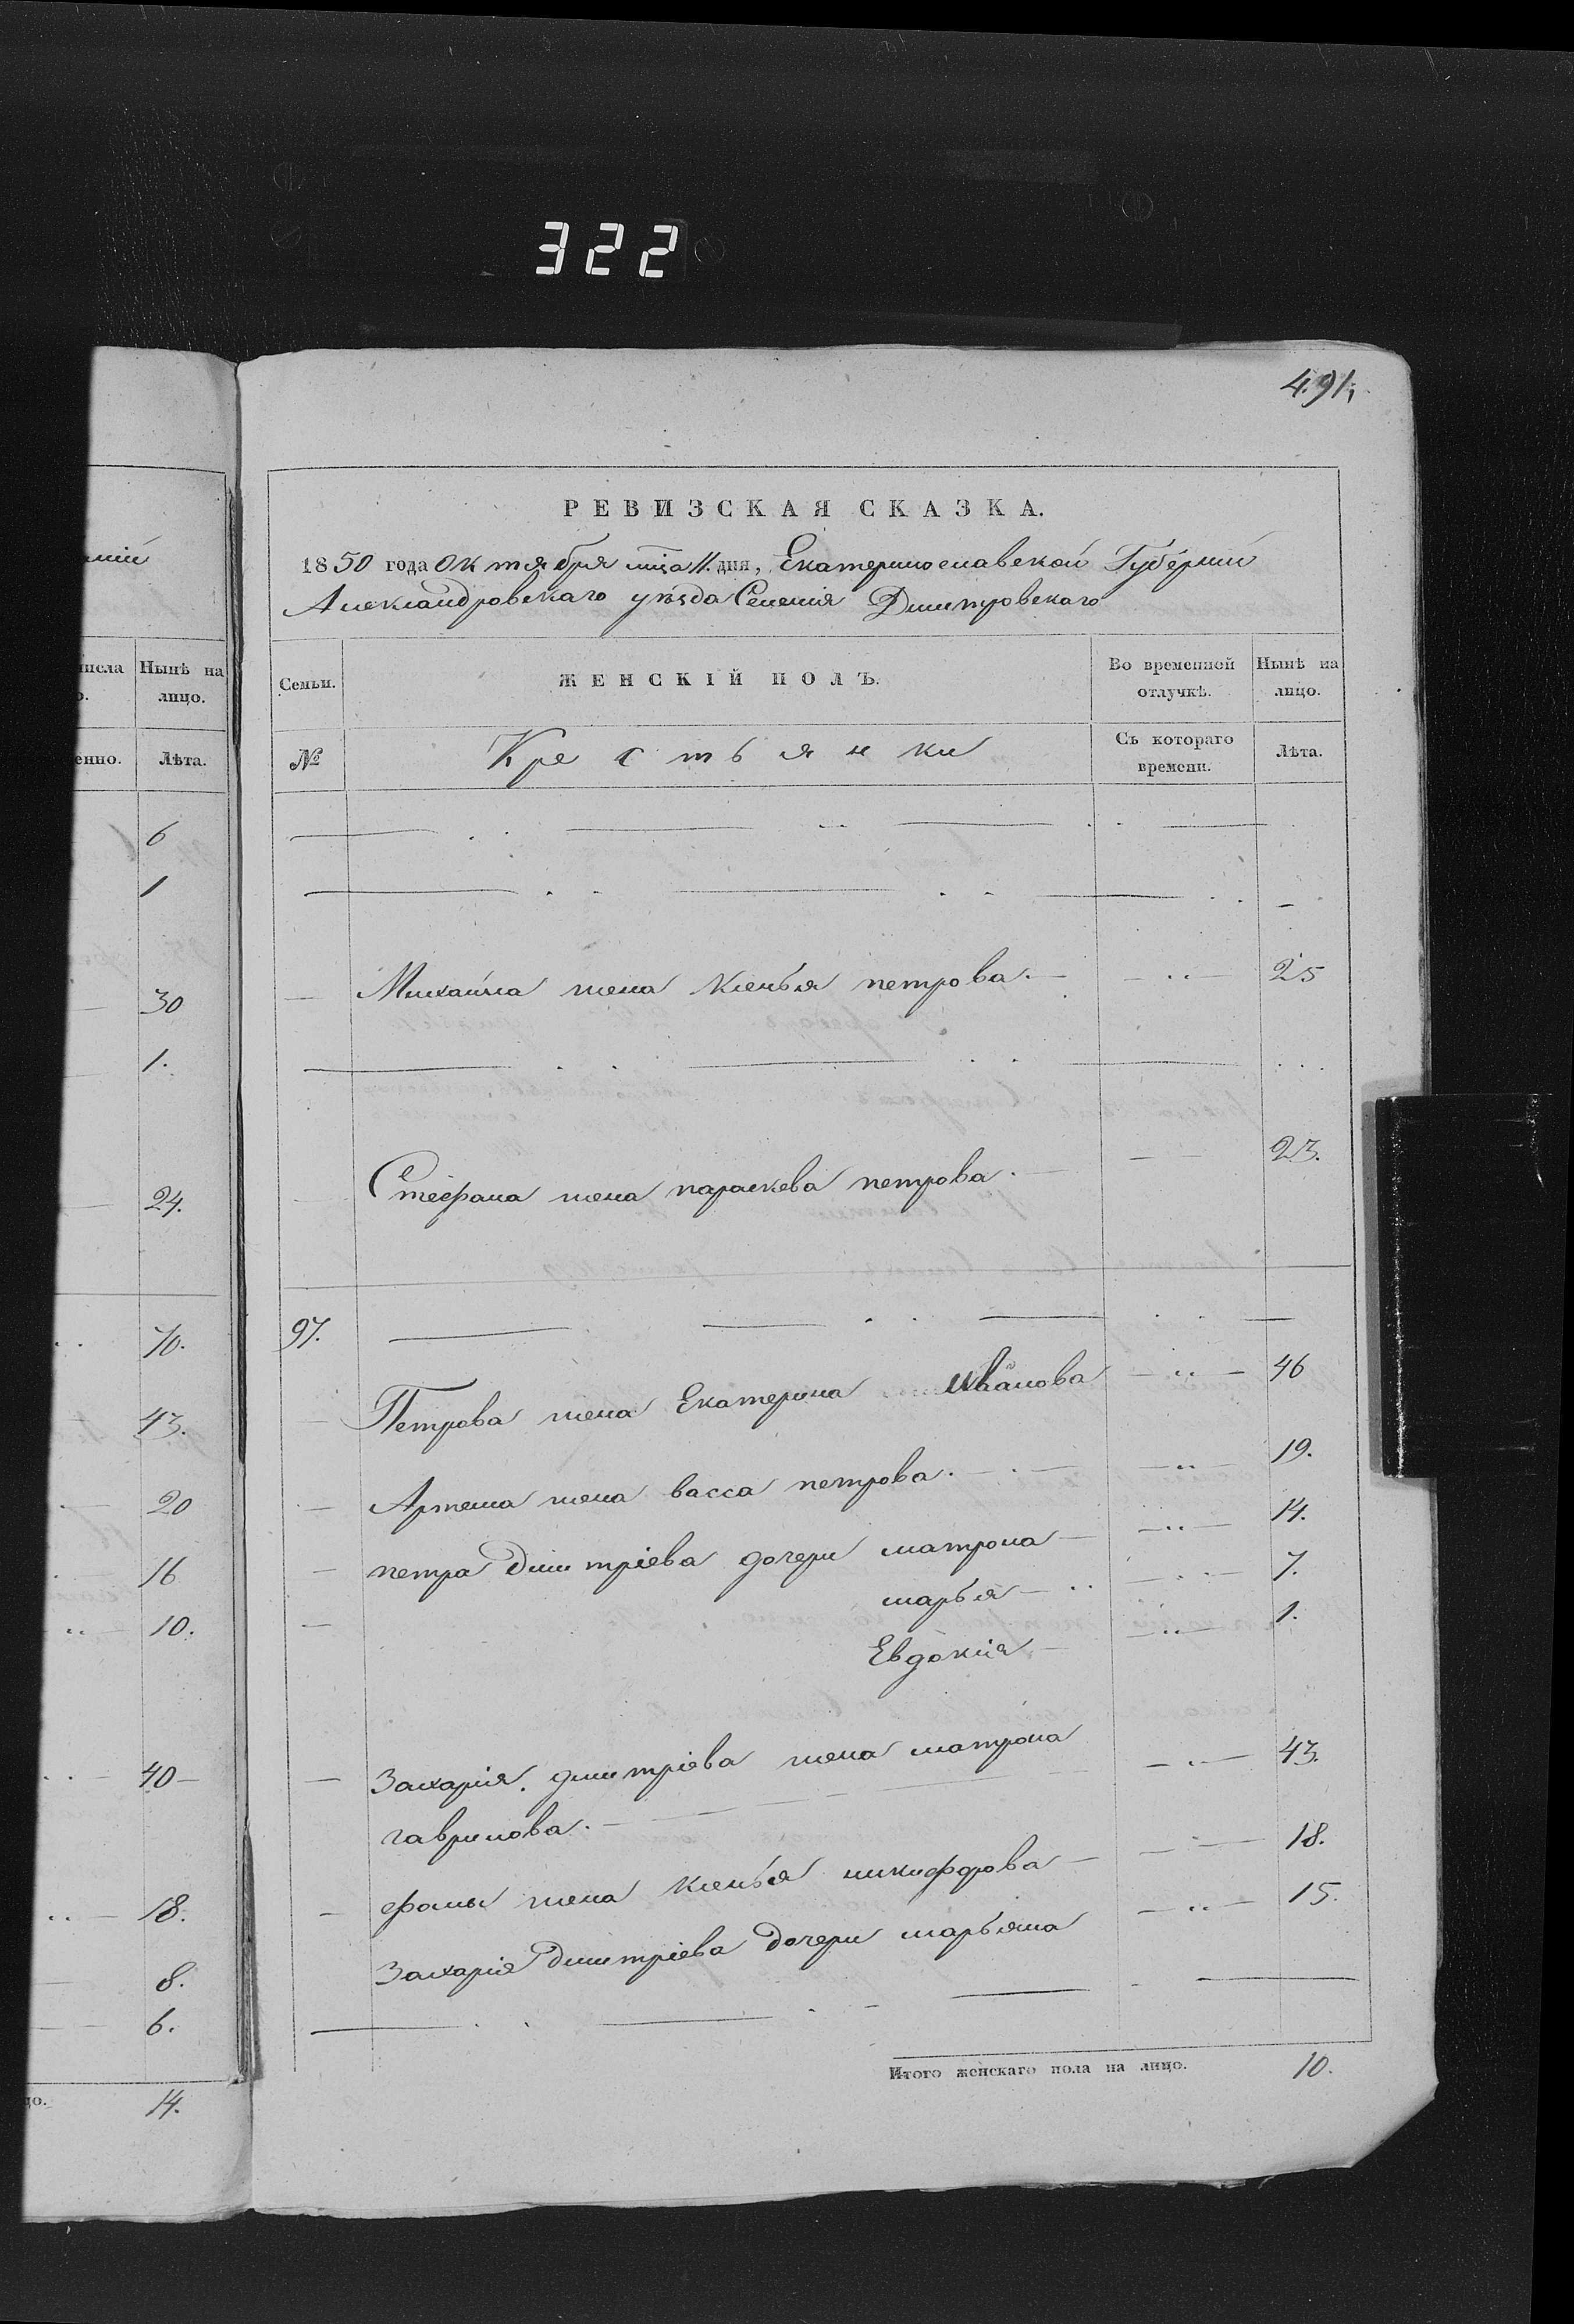 322
491,
мніи
числа
Нынѣ на
лицо.
енно.
Лѣта.
6
1
30
1.
24.
70.
43.
20
16
10.
40
18.
8.
6.
14.
РЕВИЗСКАЯ СКАЗКА.
1850 года Октября мца 11. дня, Екатеринославской Губерніи
Александровскаго уѣзда Селенія Дмитровскаго
Семьи.
ЖЕНСКІЙ ПОЛЪ.
Во временной отлучкѣ.
Нынѣ на лицо.
№
Крестьянки
Съ котораго времени.
Лѣта.
Михайла жена Ксенья петрова. 25
Стефана жена параскева петрова. 23.
97.
Петрова жена Екатерина Иванова 46
Артема жена васса петрова. 19.
петра Дмитріева дочери матрона 14.
марья 7.
Евдокія 1.
Захарія. дмитріева жена матрона 43.
гаврилова.
фомы жена Ксенья никифорова 18.
Захарія Дмитріева дочери марьяна 15.
Итого женскаго пола на лицо. 10.